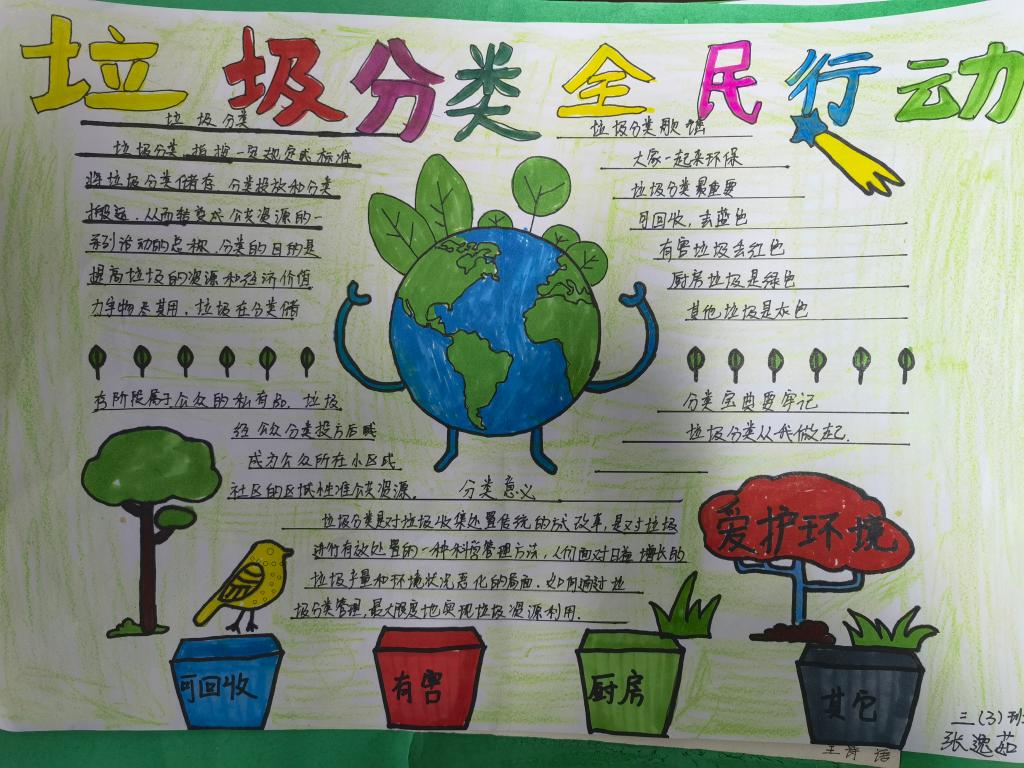 垃圾分类全民行动
垃圾分类
垃圾分类,指按一定规定或标准
将垃圾分类储存、分类投放和分类
搬运,从而转变成公共资源的一
系列活动的总称,分类的目的是
提高垃圾的资源和经济价值
力争物尽其用,垃圾在分类储
存阶段属于公众的私有品,垃圾
经公众分类投方后贱
成为公众所在小区或
社区的区域性准公共资源。
垃圾分类歌谣
大家一起来环保
垃圾分类最重要
可回收,去蓝色
有害垃圾去红色
厨房垃圾是绿色
其他垃圾是灰色
分类宝典要牢记
垃圾分类从我做起.
分类意义
垃圾分类是对垃圾收集处置传统的方式改革,是对垃圾
进行有效处置的一种科学管理方法,人们面对日益增长的
垃圾产量和环境状况恶化的局面,如何通过垃
圾分类管理,最大限度地实现垃圾资源利用.
爱护环境
可回收
有害
厨房
其它
三(3)班
张逸茹
王诗语